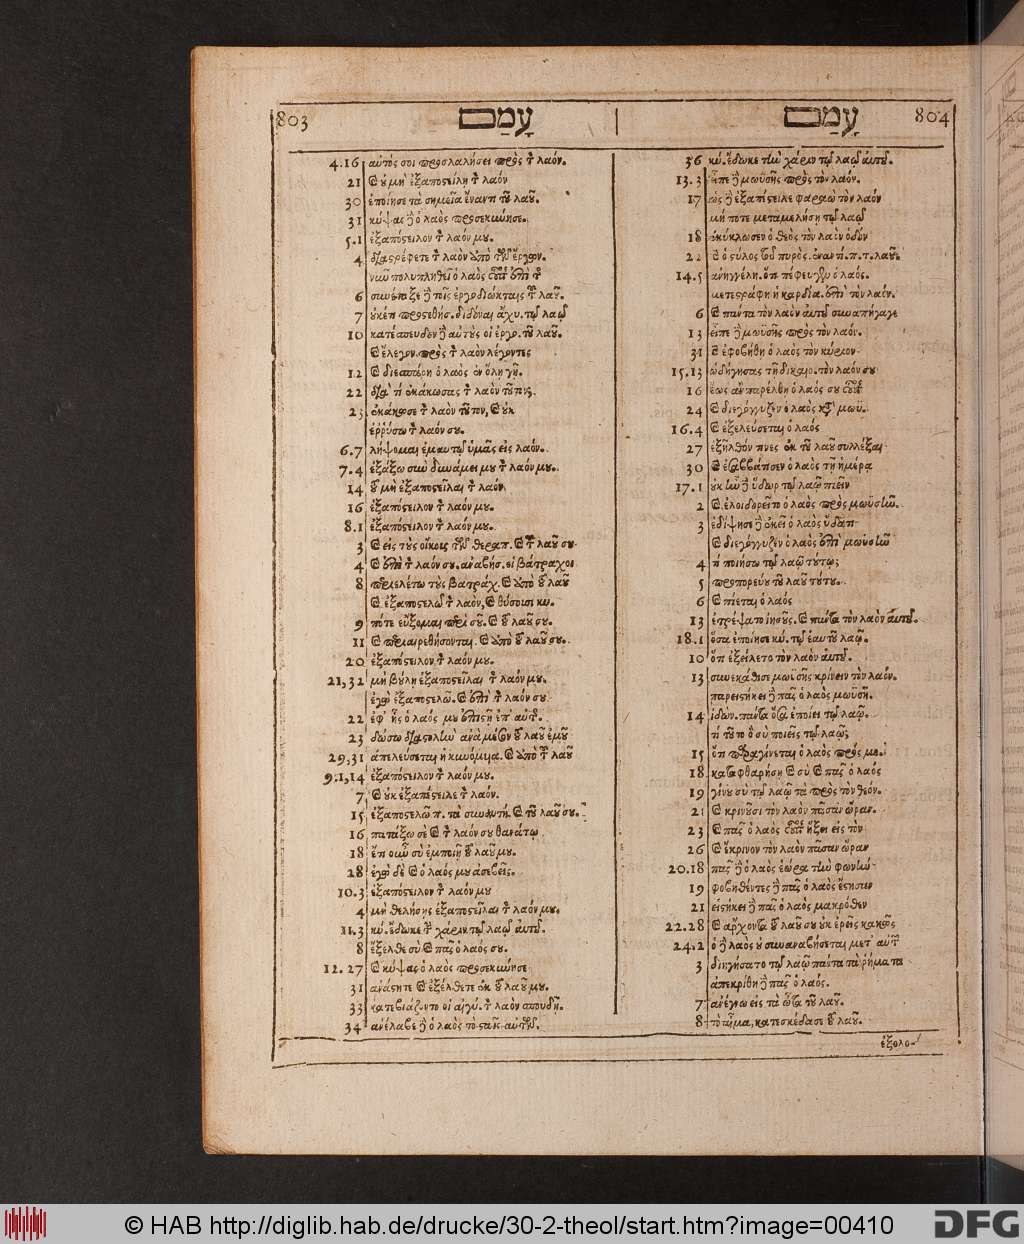 803 עָמַם
עָמַם 804
4.16 αὐτός σοι προσλαλήσει πρὸς τ λαόν.
21 ἐξαποστείλῃ τ λαόν
30 ἐποίησε τὰ σημεῖα ἔναντι τοῦ λαοῦ.
31 κύψας ὁ λαὸς προσεκύνησε.
5.1 ἐξαπόστειλον τ λαόν μου.
4 διαστρέφετε τ λαὸν ἀπὸ τῶν ἔργων.
ναῦ πολυπληθεῖ ὁ λαὸς
6 συνέταξε τοῖς ἐργοδιώκταις τοῦ λαοῦ.
7 διδόναι ἄχυ. τῷ λαῷ
10 κατέσπευδον αὐτοὺς οἱ ἐργο. τοῦ λαοῦ.
ἔλεγον πρὸς τ λαὸν λέγοντες
12 διεσπάρη ὁ λαὸς ἐν ὅλῃ γῇ.
22 διὰ τί ἐκάκωσας τ λαὸν τοῦτον.
23 ἐκάκωσε τ λαὸν τοῦτον, καὶ οὐκ
ἐῤῥύσω τ λαόν σου.
6.7 λήψομαι ἐμαυτῷ ὑμᾶς εἰς λαόν.
7.4 ἐξάξω σὺν δυνάμει μου τ λαόν μου.
14 τοῦ μὴ ἐξαποστεῖλαι τ λαόν
16 ἐξαπόστειλον τ λαόν μου.
8.1 ἐξαπόστειλον τ λαόν μου.
3 καὶ εἰς τοὺς οἴκους τῶν θεραπ. καὶ τοῦ λαοῦ σου
4 καὶ ἐπὶ τ λαόν σου. ἀναβήσ. οἱ βάτραχοι
8 περιελέτω τοὺς βατράχ. καὶ ἀπὸ τοῦ λαοῦ
καὶ ἐξαποστελῶ τ λαόν, καὶ θύσουσι κυ.
9 πότε εὔξομαι περὶ σοῦ. καὶ τοῦ λαοῦ σου.
11 καὶ περιαιρεθήσονται. καὶ ἀπὸ τοῦ λαοῦ σου.
20 ἐξαπόστειλον τ λαόν μου.
21,32 μὴ βούλῃ ἐξαποστεῖλαι τ λαόν μου.
ἐγὼ ἐξαποστελῶ. καὶ ἐπὶ τ λαόν σου
22 ἐφ' ἧς ὁ λαός μου ἔπεστιν ἐπ' αὐτ.
23 δώσω διαστολὴν ἀνὰ μέσον τοῦ λαοῦ ἐμοῦ
29,31 ἀπελεύσεται ἡ κυνόμυια. καὶ ἀπὸ τοῦ λαοῦ
9.1,14 ἐξαπόστειλον τ λαόν μου.
7 καὶ οὐκ ἐξαπέστειλε τ λαόν.
15 ἐξαποστελῶ π. τὰ συναντή. καὶ τοῦ λαοῦ σου.
16 πατάξω σὲ καὶ τ λαόν σου θανάτῳ
18 ἔτι οὖν σὺ ἐμποιῇ τοῦ λαοῦ μου.
28 ἐγὼ δὲ καὶ ὁ λαός μου ἀσεβεῖς.
10.3 ἐξαπόστειλον τ λαόν μου
4 μὴ θελήσῃς ἐξαποστεῖλαι τ λαόν μου.
11.3 κύ. ἔδωκε τ χάριν τῷ λαῷ αὐτοῦ.
8 ἔξελθε σὺ καὶ πᾶς ὁ λαός σου.
12.27 καὶ κύψας ὁ λαὸς προσεκύνησε
31 ἀνάστητε καὶ ἐξέλθετε ἐκ τοῦ λαοῦ μου.
33 κατεβιάζοντο οἱ αἰγύ. τ λαὸν σπουδῇ.
34 ἀνέλαβε ὁ λαὸς τὸ σταῖς αὐτῶν.
36 κύ. ἔδωκε τὴν χάριν τῷ λαῷ αὐτοῦ.
13.3 εἶπε μωϋσῆς πρὸς τὸν λαόν.
17 ὡς ἐξαπέστειλε φαραὼ τὸν λαόν
μή ποτε μεταμελήσῃ τῷ λαῷ
18 ἐκύκλωσεν ὁ θεὸς τὸν λαὸν ὁδόν
22 καὶ ὁ στύλος τοῦ πυρὸς. ἐναντί. π. τ. λαοῦ.
14.5 ἀνηγγέλη. ὅτι πέφευγεν ὁ λαός.
μετεστράφη ἡ καρδία. ἐπὶ τὸν λαόν.
6 καὶ πάντα τὸν λαὸν αὐτοῦ συναπήγαγε
13 εἶπε μωϋσῆς πρὸς τὸν λαόν.
31 καὶ ἐφοβήθη ὁ λαὸς τὸν κύριον
15.13 ὡδήγησας τῇ δικαιο. τὸν λαόν σου
16 ἕως ἂν παρέλθῃ ὁ λαός σου
24 καὶ διεγόγγυζεν ὁ λαὸς κατὰ μωϋ.
16.4 καὶ ἐξελεύσεται ὁ λαὸς
27 ἐξῆλθόν τινες ἐκ τοῦ λαοῦ συλλέξαι
30 καὶ ἐσαββάτισεν ὁ λαὸς τῇ ἡμέρᾳ
17.1 οὐκ ἦν ὕδωρ τῷ λαῷ πιεῖν
2 καὶ ἐλοιδορεῖτο ὁ λαὸς πρὸς μωϋσῆν.
3 ἐδίψησε ἐκεῖ ὁ λαὸς ὕδατι
καὶ διεγόγγυζεν ὁ λαὸς ἐπὶ μωϋσῆν
4 τί ποιήσω τῷ λαῷ τούτῳ;
5 προπορεύου τοῦ λαοῦ τούτου.
6 καὶ πίεται ὁ λαός
13 ἐτρέψατο ἰησοῦς. καὶ πάντα τὸν λαὸν αὐτοῦ.
18.1 ὅσα ἐποίησε κύ. τῷ ἑαυτοῦ λαῷ.
10 ὅτι ἐξείλετο τὸν λαὸν αὐτοῦ.
13 συνεκάθισε μωϋσῆς κρίνειν τὸν λαόν.
παρειστήκει πᾶς ὁ λαὸς μωϋσῇ.
14 ἰδὼν. πάντα ὅσα ἐποίει τῷ λαῷ.
τί τοῦτο ὃ σὺ ποιεῖς τῷ λαῷ;
15 ὅτι παραγίνεται ὁ λαὸς πρός με.
18 καταφθαρήσῃ καὶ σὺ καὶ πᾶς ὁ λαός
19 γίνου σὺ τῷ λαῷ τὰ πρὸς τὸν θεόν.
21 καὶ κρινοῦσι τὸν λαὸν πᾶσαν ὥραν.
23 καὶ πᾶς ὁ λαὸς ἥξει εἰς τὸν
26 καὶ ἔκρινον τὸν λαὸν πᾶσαν ὥραν
20.18 πᾶς ὁ λαὸς ἑώρα τὴν φωνὴν
19 φοβηθέντες πᾶς ὁ λαὸς ἔστησαν
21 εἱστήκει πᾶς ὁ λαὸς μακρόθεν
22.28 καὶ ἄρχοντα τοῦ λαοῦ σου οὐκ ἐρεῖς κακῶς
24.2 ὁ λαὸς οὐ συναναβήσεται μετ' αὐτῶν
3 διηγήσατο τῷ λαῷ πάντα τὰ ῥήματα
ἀπεκρίθη πᾶς ὁ λαός.
7 ἀνέγνω εἰς τὰ ὦτα τοῦ λαοῦ.
8 τὸ αἷμα, κατεσκέδασε τοῦ λαοῦ.
ἐξολο-
© HAB http://diglib.hab.de/drucke/30-2-theol/start.htm?image=00410 DFG